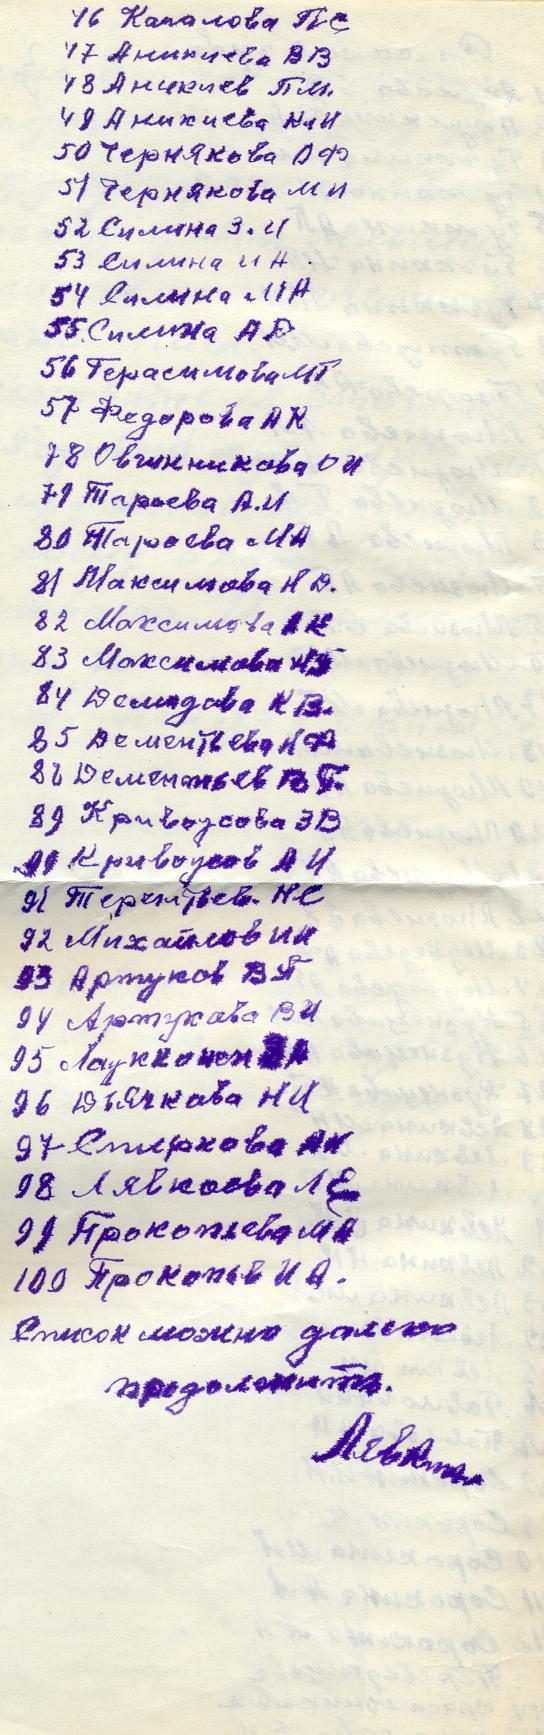 46 Капалова ПС
47 Аникиева ВВ
48 Аникиев П.М.
49 Аникиева К.И
50 Чернякова А Ф
51 Чернякова М И
52 Силина З. И
53 Силина И Н
54 Силина М А
55. Силина А Е
56 Герасимова МГ
57 Федорова А К
78 Овчинникова О И
79 Тароева А.И
80 Тароева МА
81 Максимова Н Д.
82 Максимова А К
83 Максимова
84 Демидова К В.
85 Дементьева Н Ф
Дементьев В Г.
89 Кривоусова З В
Кривоусов А И
91 Терентьев. Н С
92 Михайлов И И
93 Артуков В Г
94 Артукова В И
95 Лаукконен
96 Дьячкова Н И
97 Спиркова А К
98 Лявкоева Л Е
99 Прокопьева М А
100 Прокопьев И А.
Список можно далеко
продолжить.